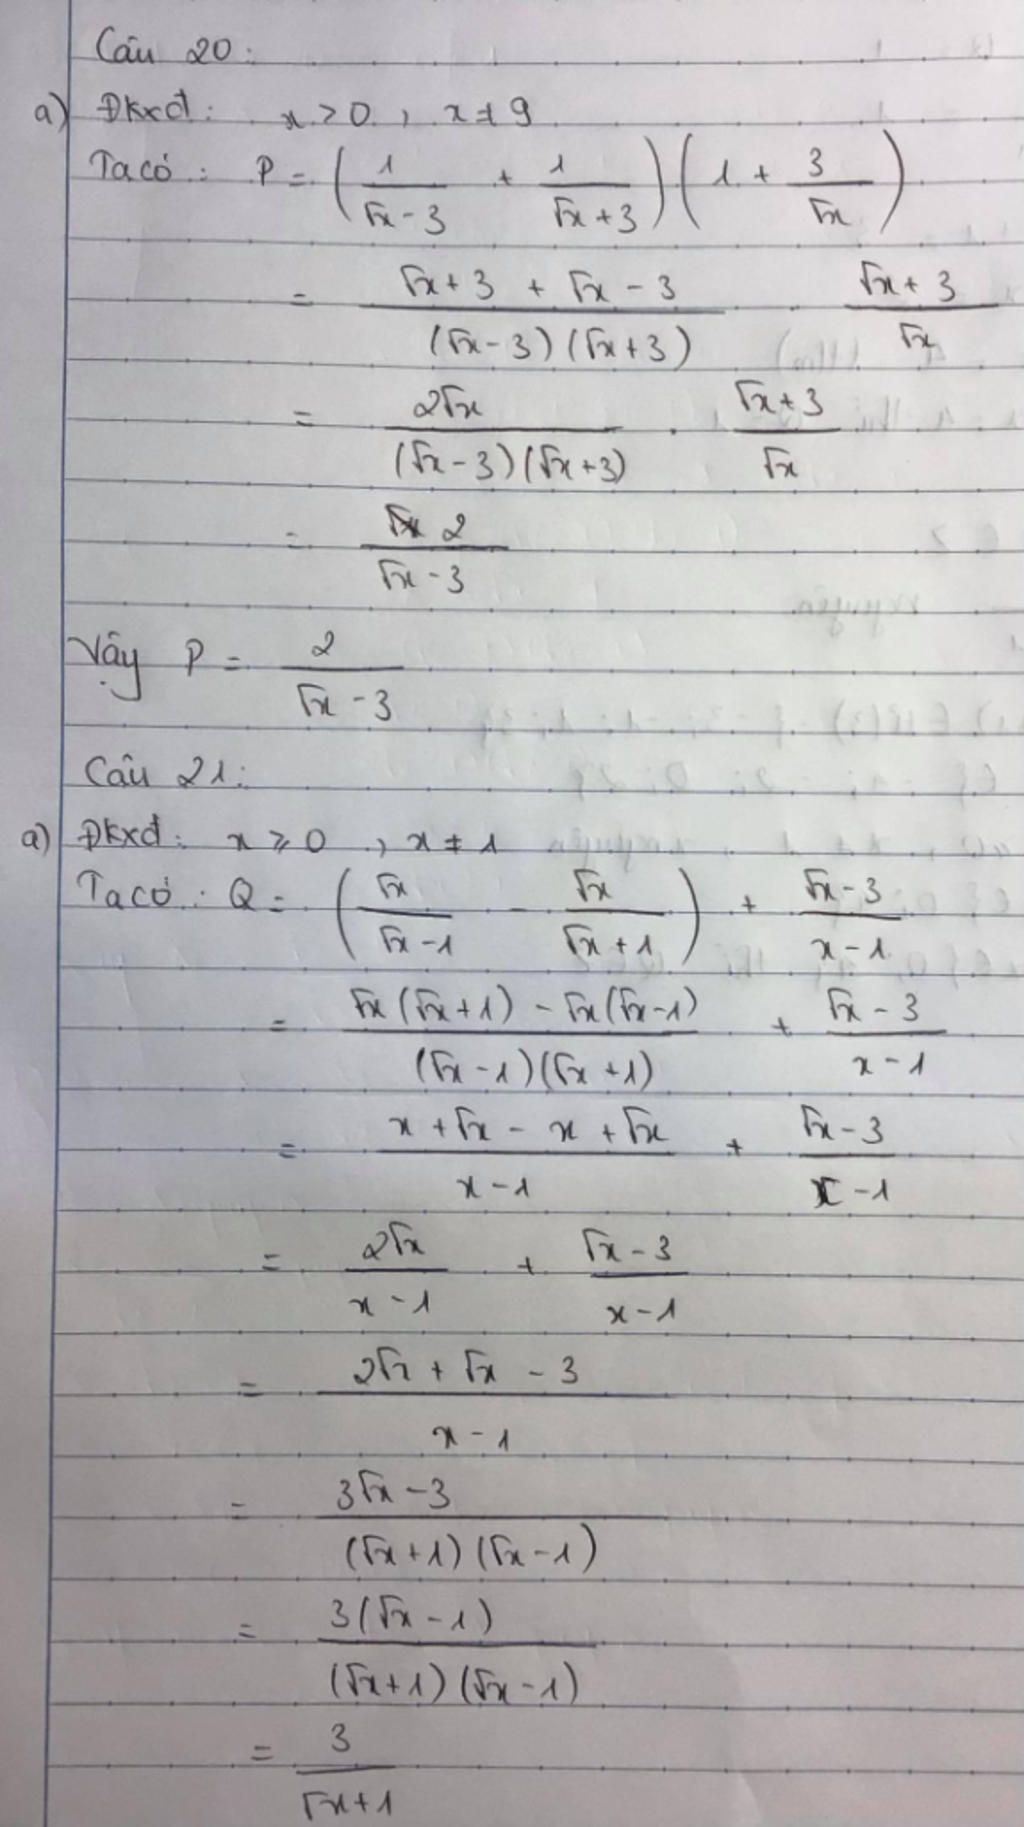 Câu 20:
a) Đkxđ: x > 0, x ≠ 9
Ta có: P = (1/(√x - 3) + 1/(√x + 3)) (1 + 3/√x)
= (√x + 3 + √x - 3)/((√x - 3)(√x + 3)) . (√x + 3)/√x
= 2√x/((√x - 3)(√x + 3)) . (√x + 3)/√x
= 2/(√x - 3)
Vậy P = 2/(√x - 3)
Câu 21:
a) Đkxđ: x ≥ 0, x ≠ 1
Ta có: Q = (√x/(√x - 1) - √x/(√x + 1)) + (√x - 3)/(x - 1)
= (√x(√x + 1) - √x(√x - 1))/((√x - 1)(√x + 1)) + (√x - 3)/(x - 1)
= (x + √x - x + √x)/(x - 1) + (√x - 3)/(x - 1)
= 2√x/(x - 1) + (√x - 3)/(x - 1)
= (2√x + √x - 3)/(x - 1)
= (3√x - 3)/((√x + 1)(√x - 1))
= 3(√x - 1)/((√x + 1)(√x - 1))
= 3/(√x + 1)